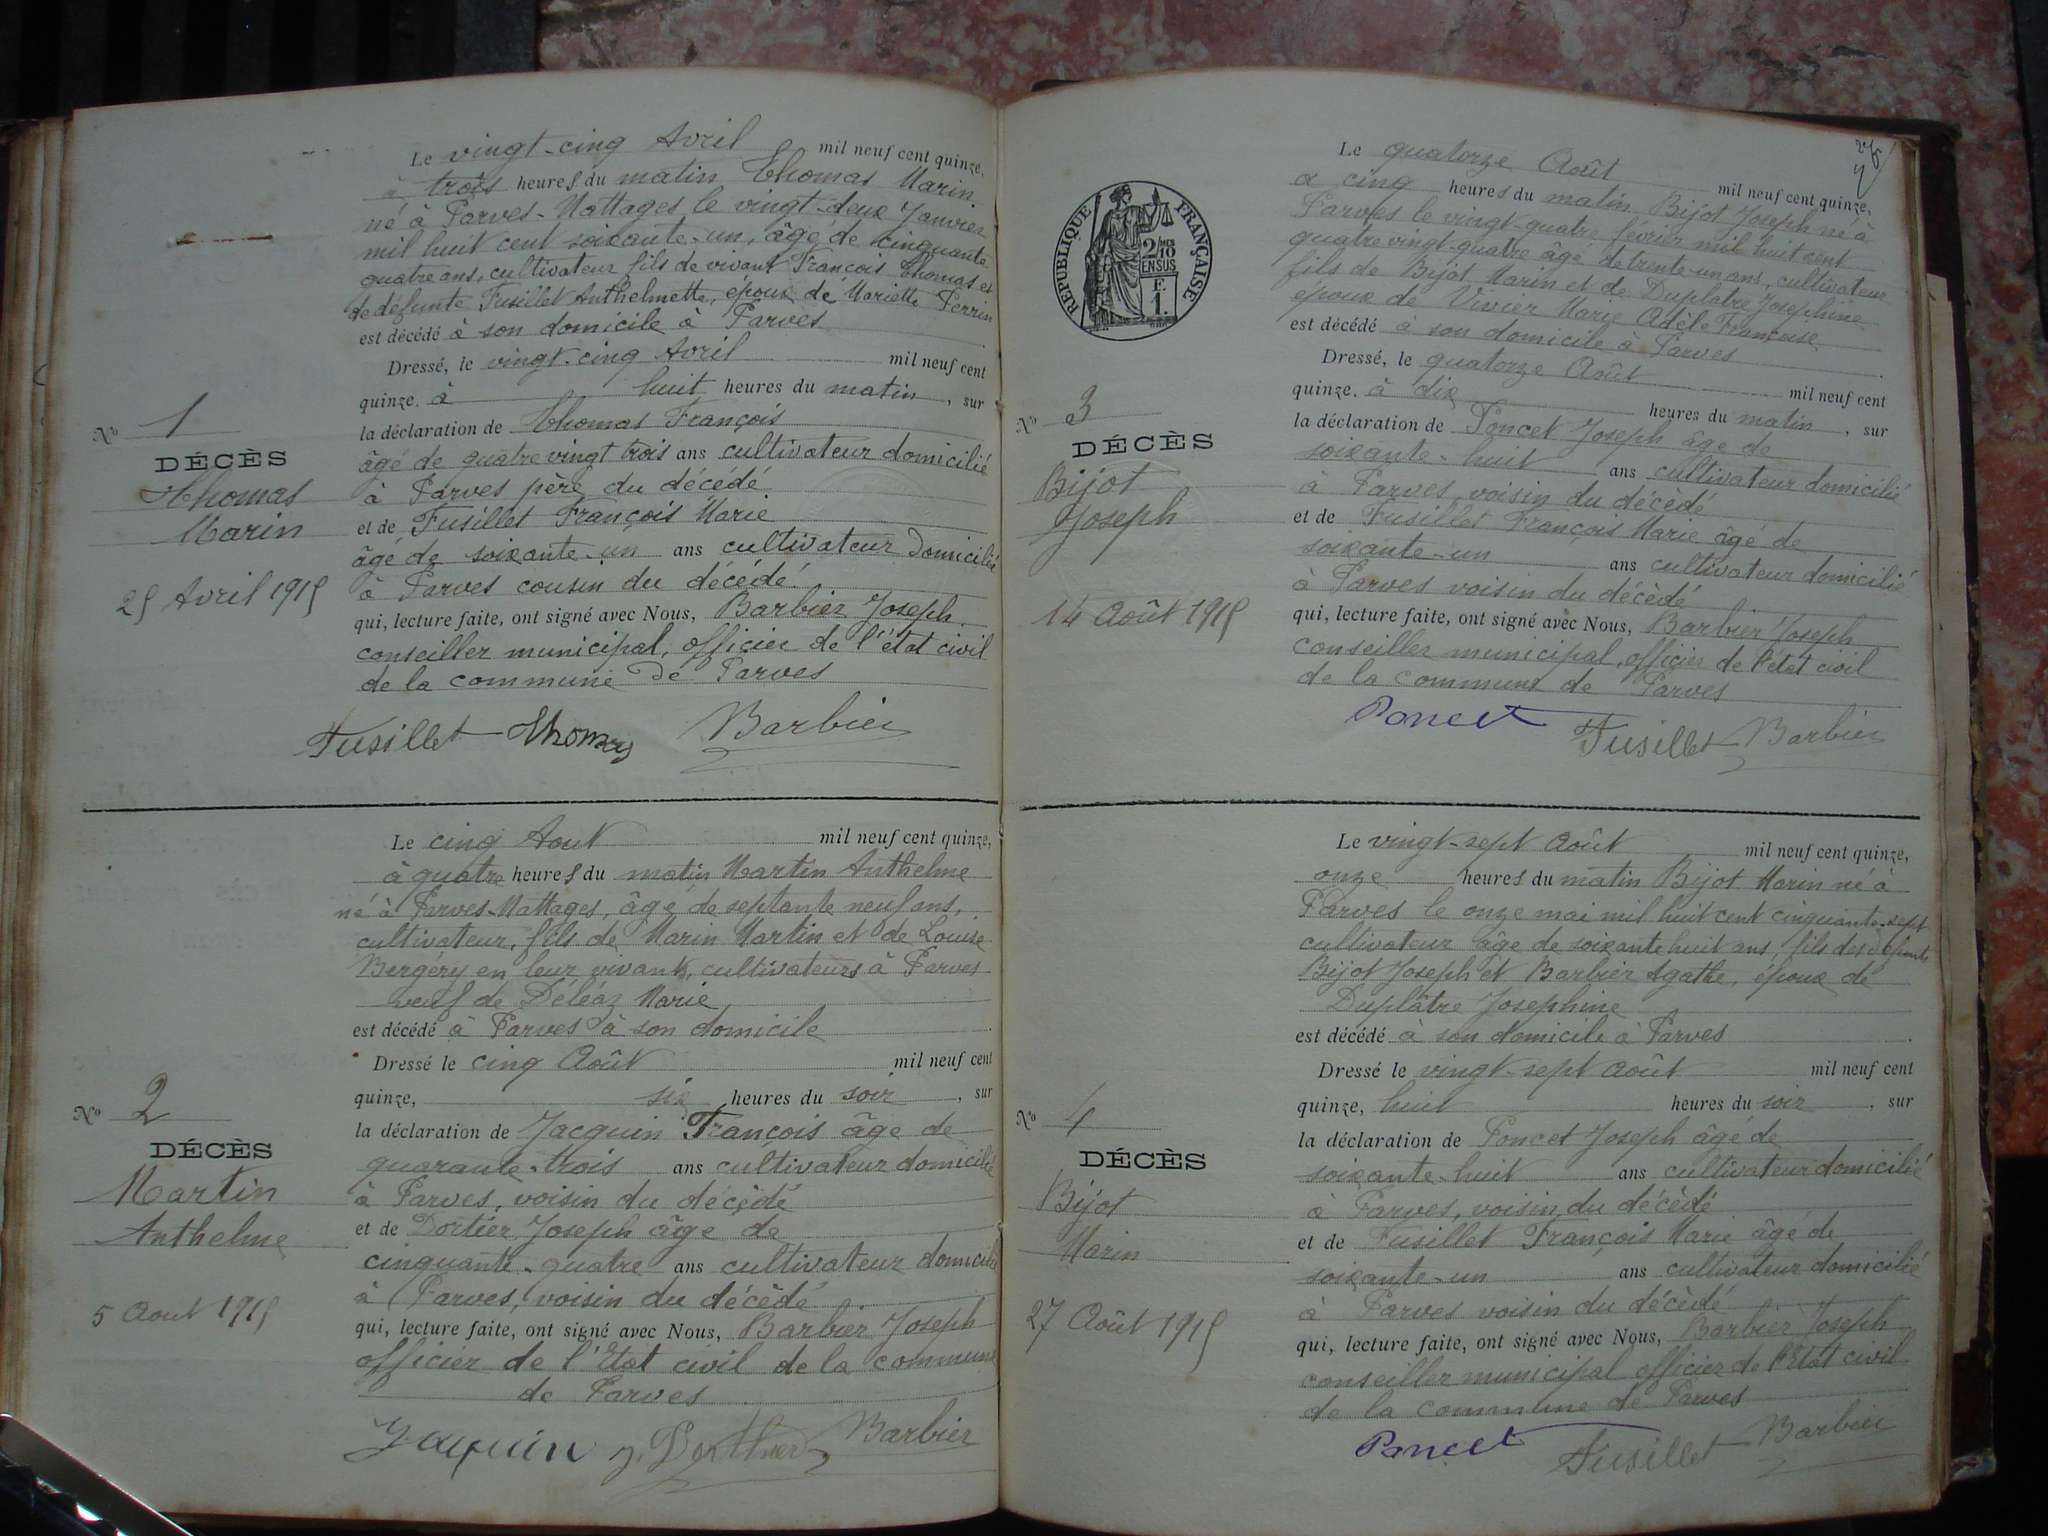 Le vingt-cinq Avril mil neuf cent quinze,
à trois heures du matin Thomas Marin
né à Parves-Nattages le vingt-deux Janvier
mil huit cent soixante-un, âgé de cinquante
quatre ans, cultivateur fils de vivant François Thomas et
de défunte Fusillet Anthelmette, époux de Mariette Perrin
est décédé à son domicile à Parves
Dressé, le vingt-cinq Avril mil neuf cent
quinze, à huit heures du matin, sur
la déclaration de Thomas François
âgé de quatre vingt trois ans cultivateur domicilié
à Parves père du décédé
et de Fusillet François Marie
âgé de soixante-un ans cultivateur domicilié
à Parves cousin du décédé
qui, lecture faite, ont signé avec Nous, Barbier Joseph
conseiller municipal, officier de l'état civil
de la commune de Parves
Fusillet Thomas Barbier
No 1
DÉCÈS
Thomas
Marin
25 Avril 1915
Le cinq Aout mil neuf cent quinze,
à quatre heures du matin Martin Anthelme
né à Parves-Nattages, âgé de septante neuf ans,
cultivateur, fils de Marin Martin et de Louise
Bergéry en leur vivants, cultivateurs à Parves
veuf de Déléaz Marie
est décédé à Parves à son domicile
Dressé le cinq Août mil neuf cent
quinze, six heures du soir, sur
la déclaration de Jacquin François âge de
quarante-trois ans cultivateur domicilié
à Parves, voisin du décédé
et de Dortier Joseph âge de
cinquante-quatre ans cultivateur domicilié
à Parves, voisin du décédé
qui, lecture faite, ont signé avec Nous, Barbier Joseph
officier de l'Etat civil de la commune
de Parves
Jaquin Barbier
No 2
DÉCÈS
Martin
Anthelme
5 Aout 1915
Le quatorze Août mil neuf cent quinze,
a cinq heures du matin Bijot Joseph né à
Parves le vingt-quatre février mil huit cent
quatre vingt-quatre âgé de trente-un ans, cultivateur
fils de Bijot Marin et de Duplatre Josephine
époux de Vivier Marie Adèle Françoise
est décédé à son domicile à Parves
Dressé, le quatorze Août mil neuf cent
quinze, à dix heures du matin, sur
la déclaration de Poncet Joseph âge de
soixante-huit ans cultivateur domicilié
à Parves, voisin du décédé
et de Fusillet François Marie âgé de
soixante-un ans cultivateur domicilié
à Parves voisin du décédé
qui, lecture faite, ont signé avec Nous, Barbier Joseph
conseiller municipal, officier de l'état civil
de la commune de Parves
Poncet Fusillet Barbier
RÉPUBLIQUE FRANÇAISE
2/10
EN SUS
F.
1.
No 3
DÉCÈS
Bijot
Joseph
14 Août 1915
Le vingt-sept Août mil neuf cent quinze,
onze heures du matin Bijot Marin né à
Parves le onze mai mil huit cent cinquante-sept
cultivateur âge de soixante huit ans, fils des défunts
Bijot Joseph et Barbier Agathe, époux de
Duplâtre Josephine
est décédé à son domicile à Parves
Dressé le vingt-sept Août mil neuf cent
quinze, huit heures du soir, sur
la déclaration de Poncet Joseph âgé de
soixante-huit ans cultivateur domicilié
à Parves, voisin du décédé
et de Fusillet François Marie âgé de
soixante-un ans cultivateur domicilié
à Parves voisin du décédé
qui, lecture faite, ont signé avec Nous, Barbier Joseph
conseiller municipal officier de l'Etat civil
de la commune de Parves
Poncet Fusillet Barbier
No 4
DÉCÈS
Bijot
Marin
27 Août 1915